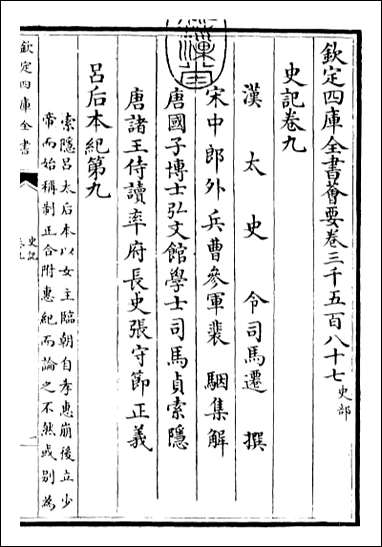 欽定四庫全書薈要卷三千五百八十七史部
史記卷九
漢太史令司馬遷撰
宋中郎外兵曹參軍裴駰集解
唐國子博士弘文館學士司馬貞索隱
唐諸王侍讀率府長史張守節正義
呂后本紀第九
索隱呂太后本以女主臨朝自孝惠崩後立少
帝而始稱制正合附惠紀而論之不然或别為
欽定四庫全書
史記
卷九
一